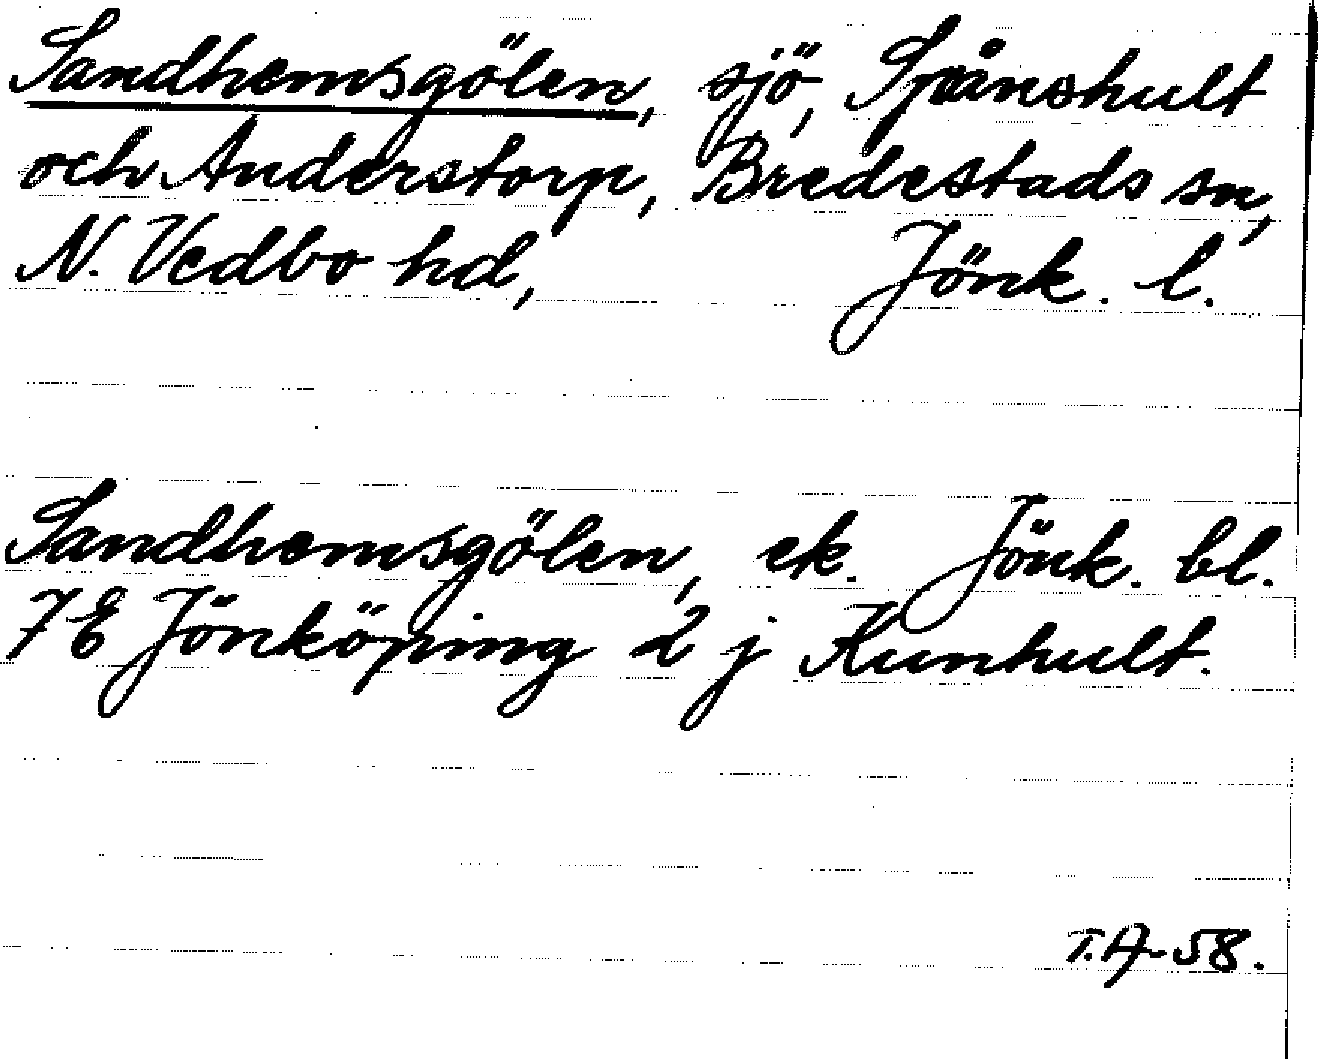 Sandhemsgölen, sjö, Spånshult
och Anderstorp, Bredestads sn,
N. Vedbo hd, Jönk. l.
Sandhemsgölen, ek. Jönk. bl.
7E Jönköping 2 j Kunhult.
T.A-58.